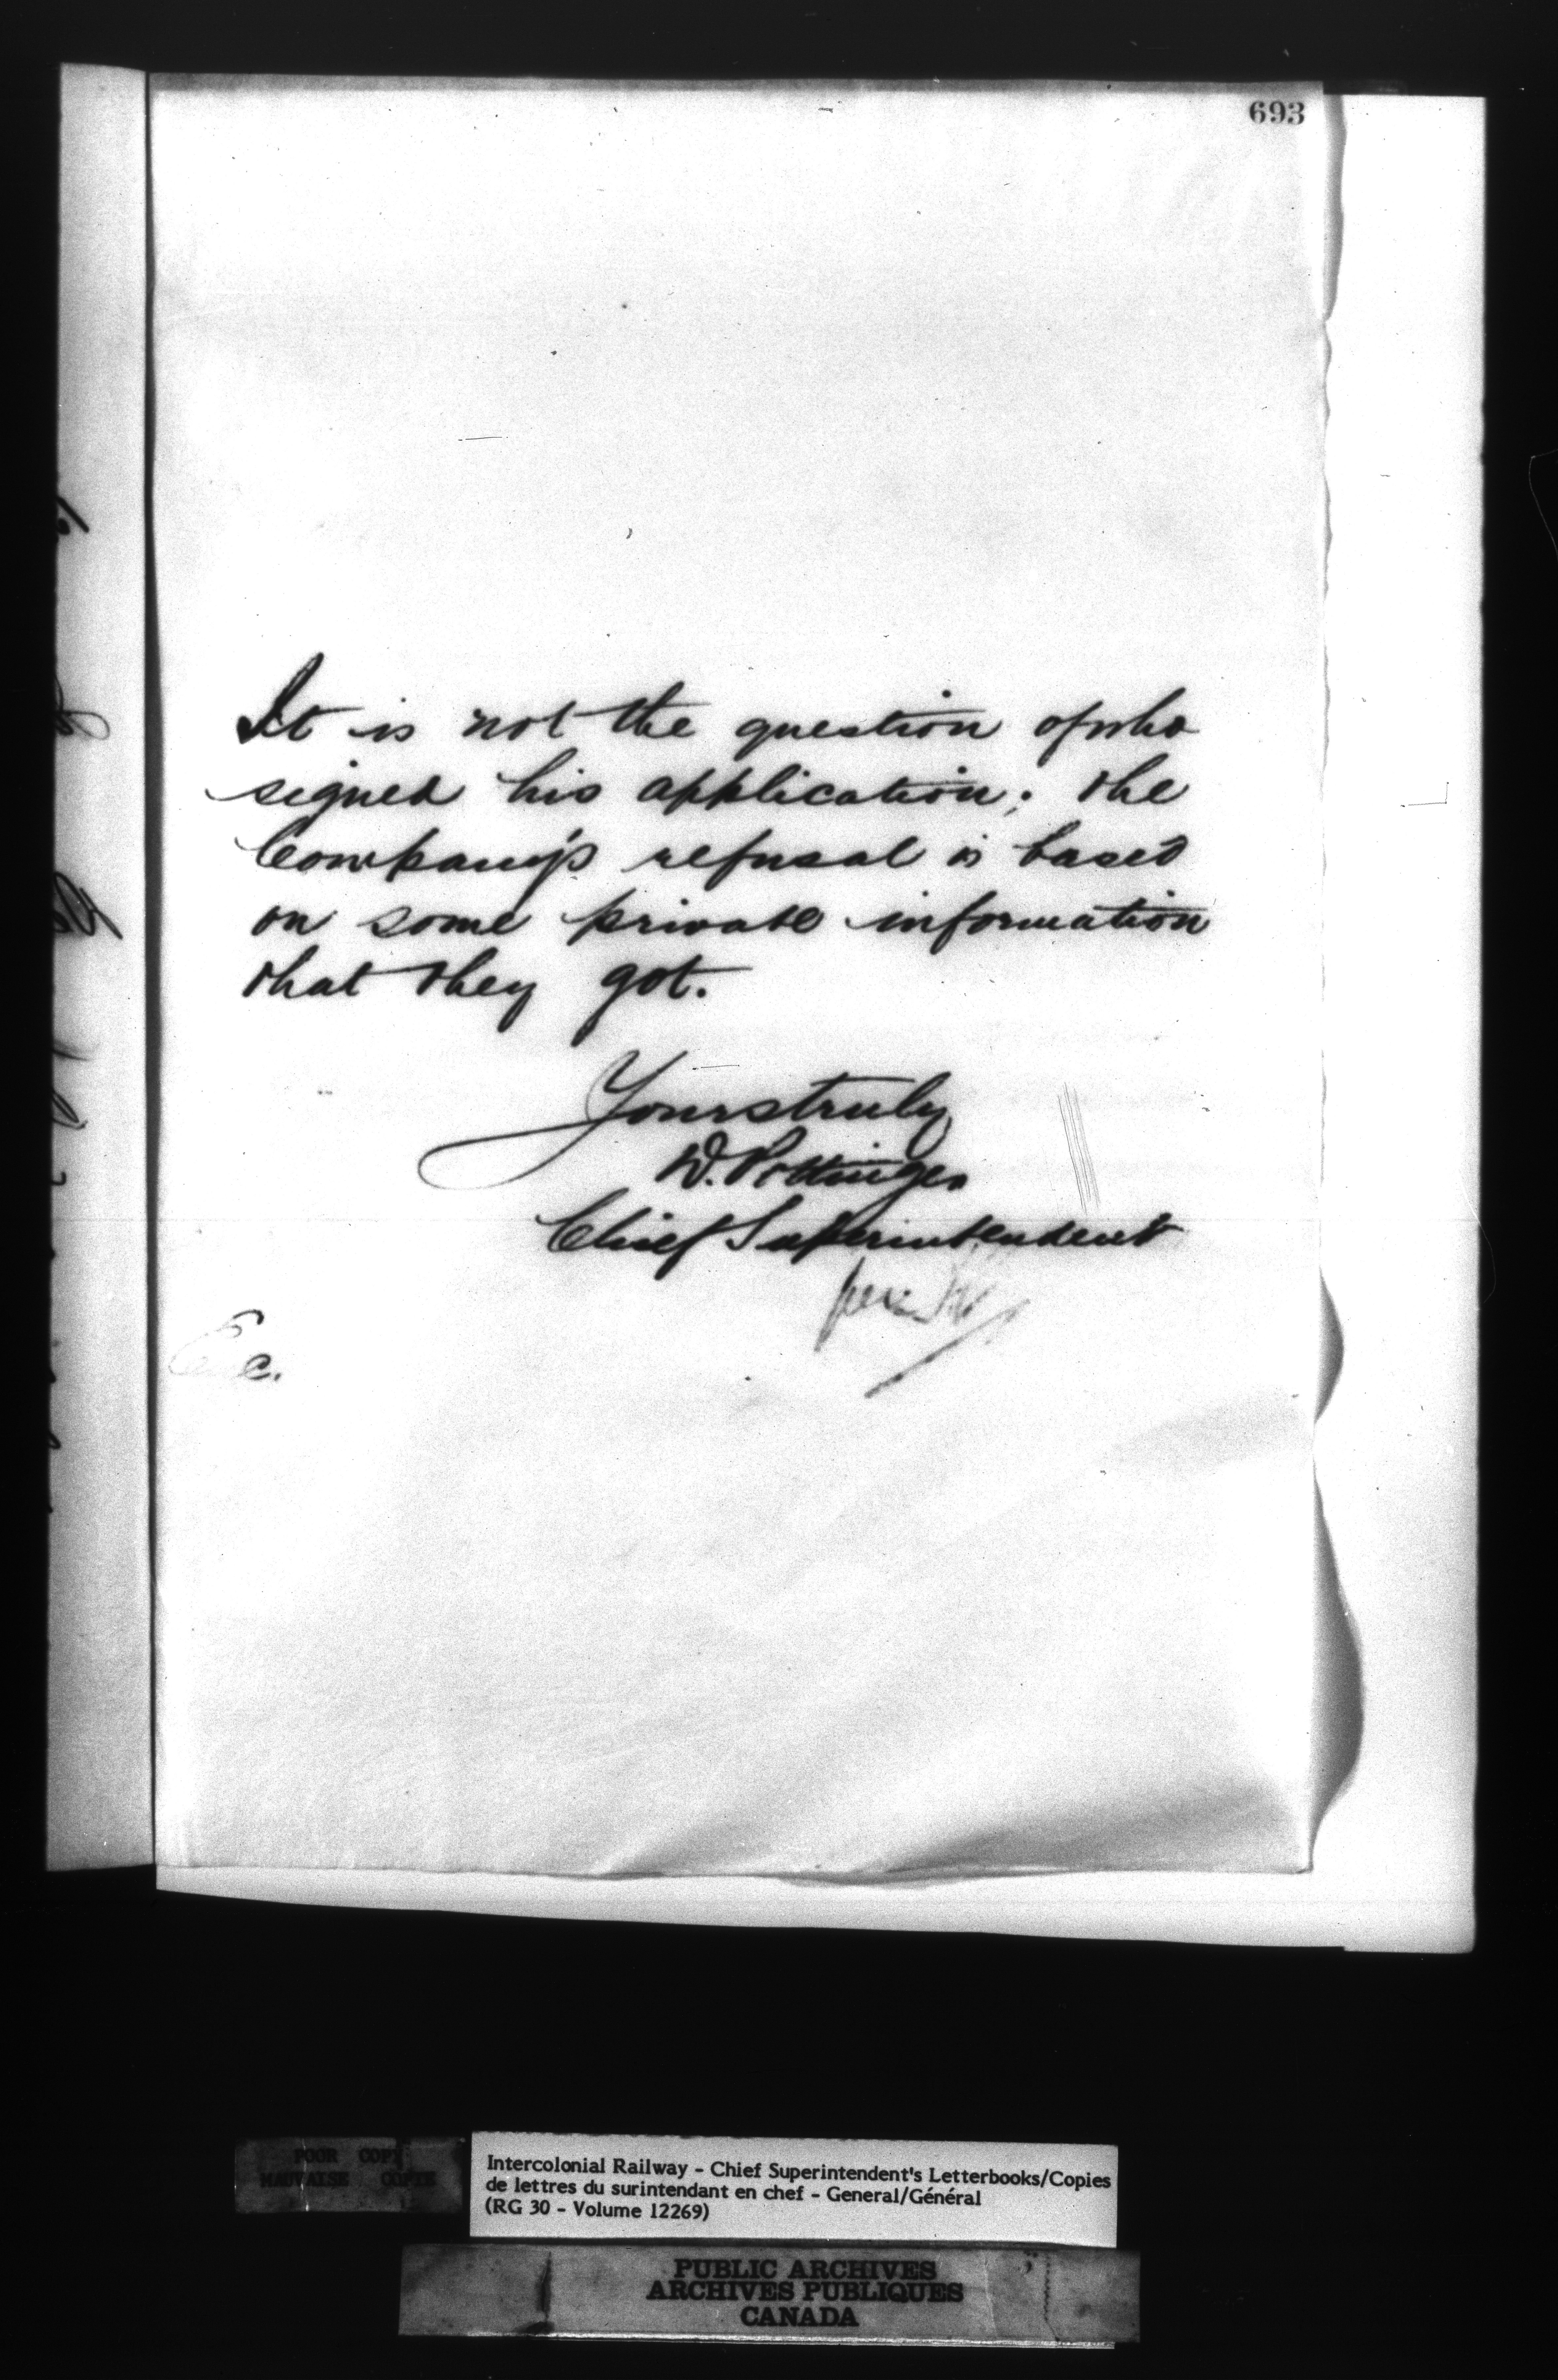 693
It is not the question of who
signed his application; the
Company's refusal is based
on some private information
that they got.
Yours truly
D. Pottinger
Chief Superintendent
per
POOR COPY
MAUVAISE COPIE
Intercolonial Railway - Chief Superintendent's Letterbooks/Copies
de lettres du surintendant en chef - General/Général
(RG 30 - Volume 12269)
PUBLIC ARCHIVES
ARCHIVES PUBLIQUES
CANADA